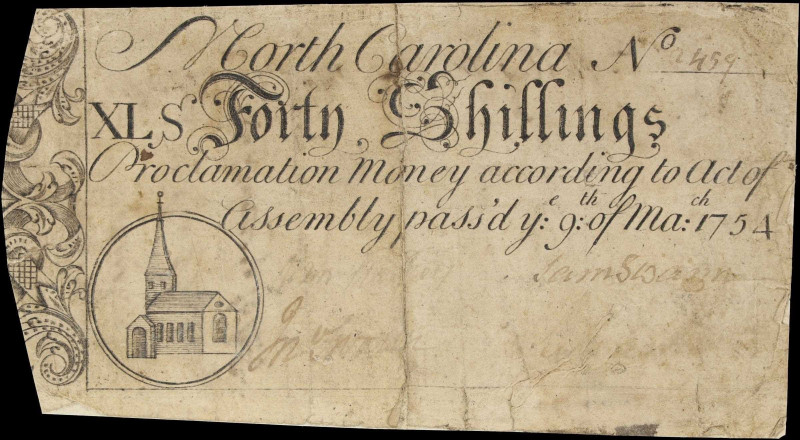 North Carolina No 1459
XL S Forty Shillings
Proclamation Money according to Act of
Assembly pass'd ye: 9:th of Ma:ch 1754
Sam Swann